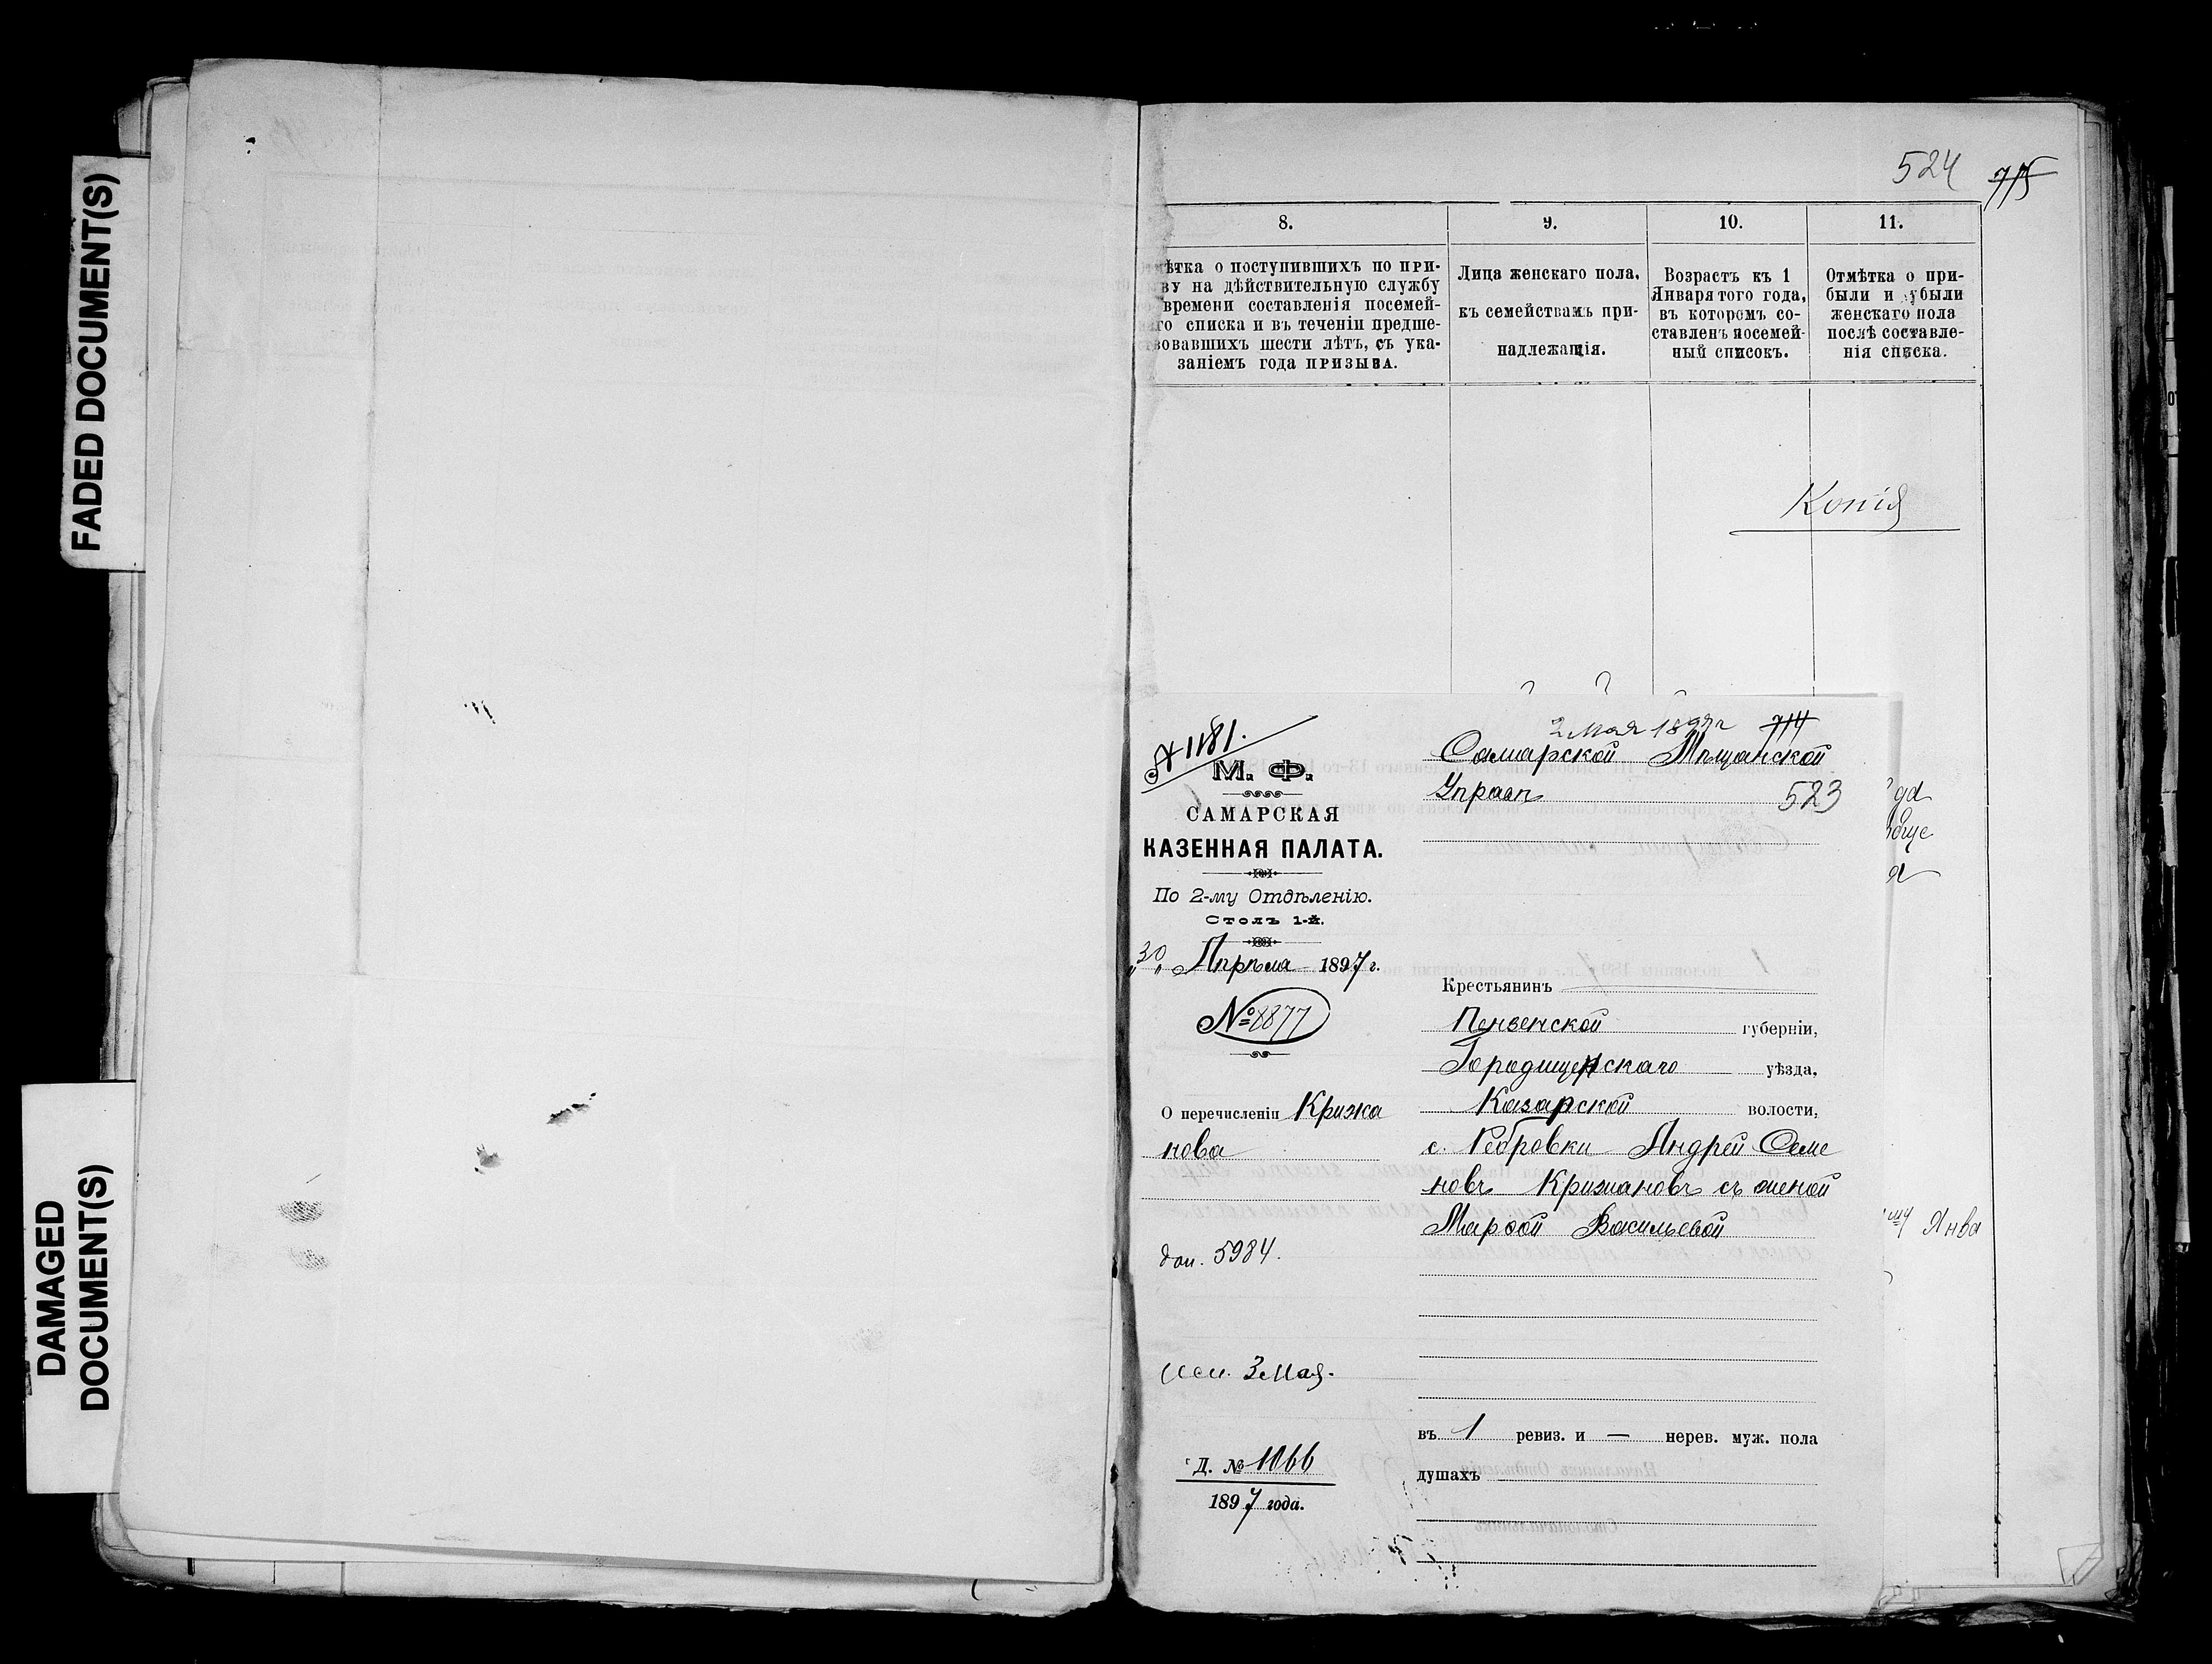 FADED DOCUMENT(S)
DAMAGED
DOCUMENT(S)
524 715
8.
ѣтка о поступившихъ по при-
ву на дѣйствительную службу
времени составленія посемей-
го списка и въ теченіи предше-
вовавшихъ шести лѣтъ, съ ука-
заніемъ года ПРИЗЫВА.
9.
Лица женскаго пола,
къ семействамъ при-
надлежащія.
10.
Возрастъ къ 1
Января того года,
въ которомъ со-
ставленъ посемей-
ный списокъ.
11.
Отмѣтка о при-
были и убыли
женскаго пола
послѣ составле-
нія списка.
Копія
№ 1181.
М. Ф.
САМАРСКАЯ
КАЗЕННАЯ ПАЛАТА.
По 2-му Отдѣленію.
Столъ 1-й.
„30„ Апрѣля 1897 г.
№ 8877
О перечисленіи Крижа
нова
доп. 5984.
исп. 3 Мая.
Д. № 1066
1897 года.
2 Мая 1897 г 714
Самарской Мѣщанской
Управѣ
523
Крестьянинъ
Пензенской губерніи,
Городищенскаго уѣзда,
Казарской волости,
с. Ребровки Андрей Семе
новъ Крижановъ съ женой
Марѳой Васильевой
въ 1 ревиз. и — нерев. муж. пола
душахъ
Янва